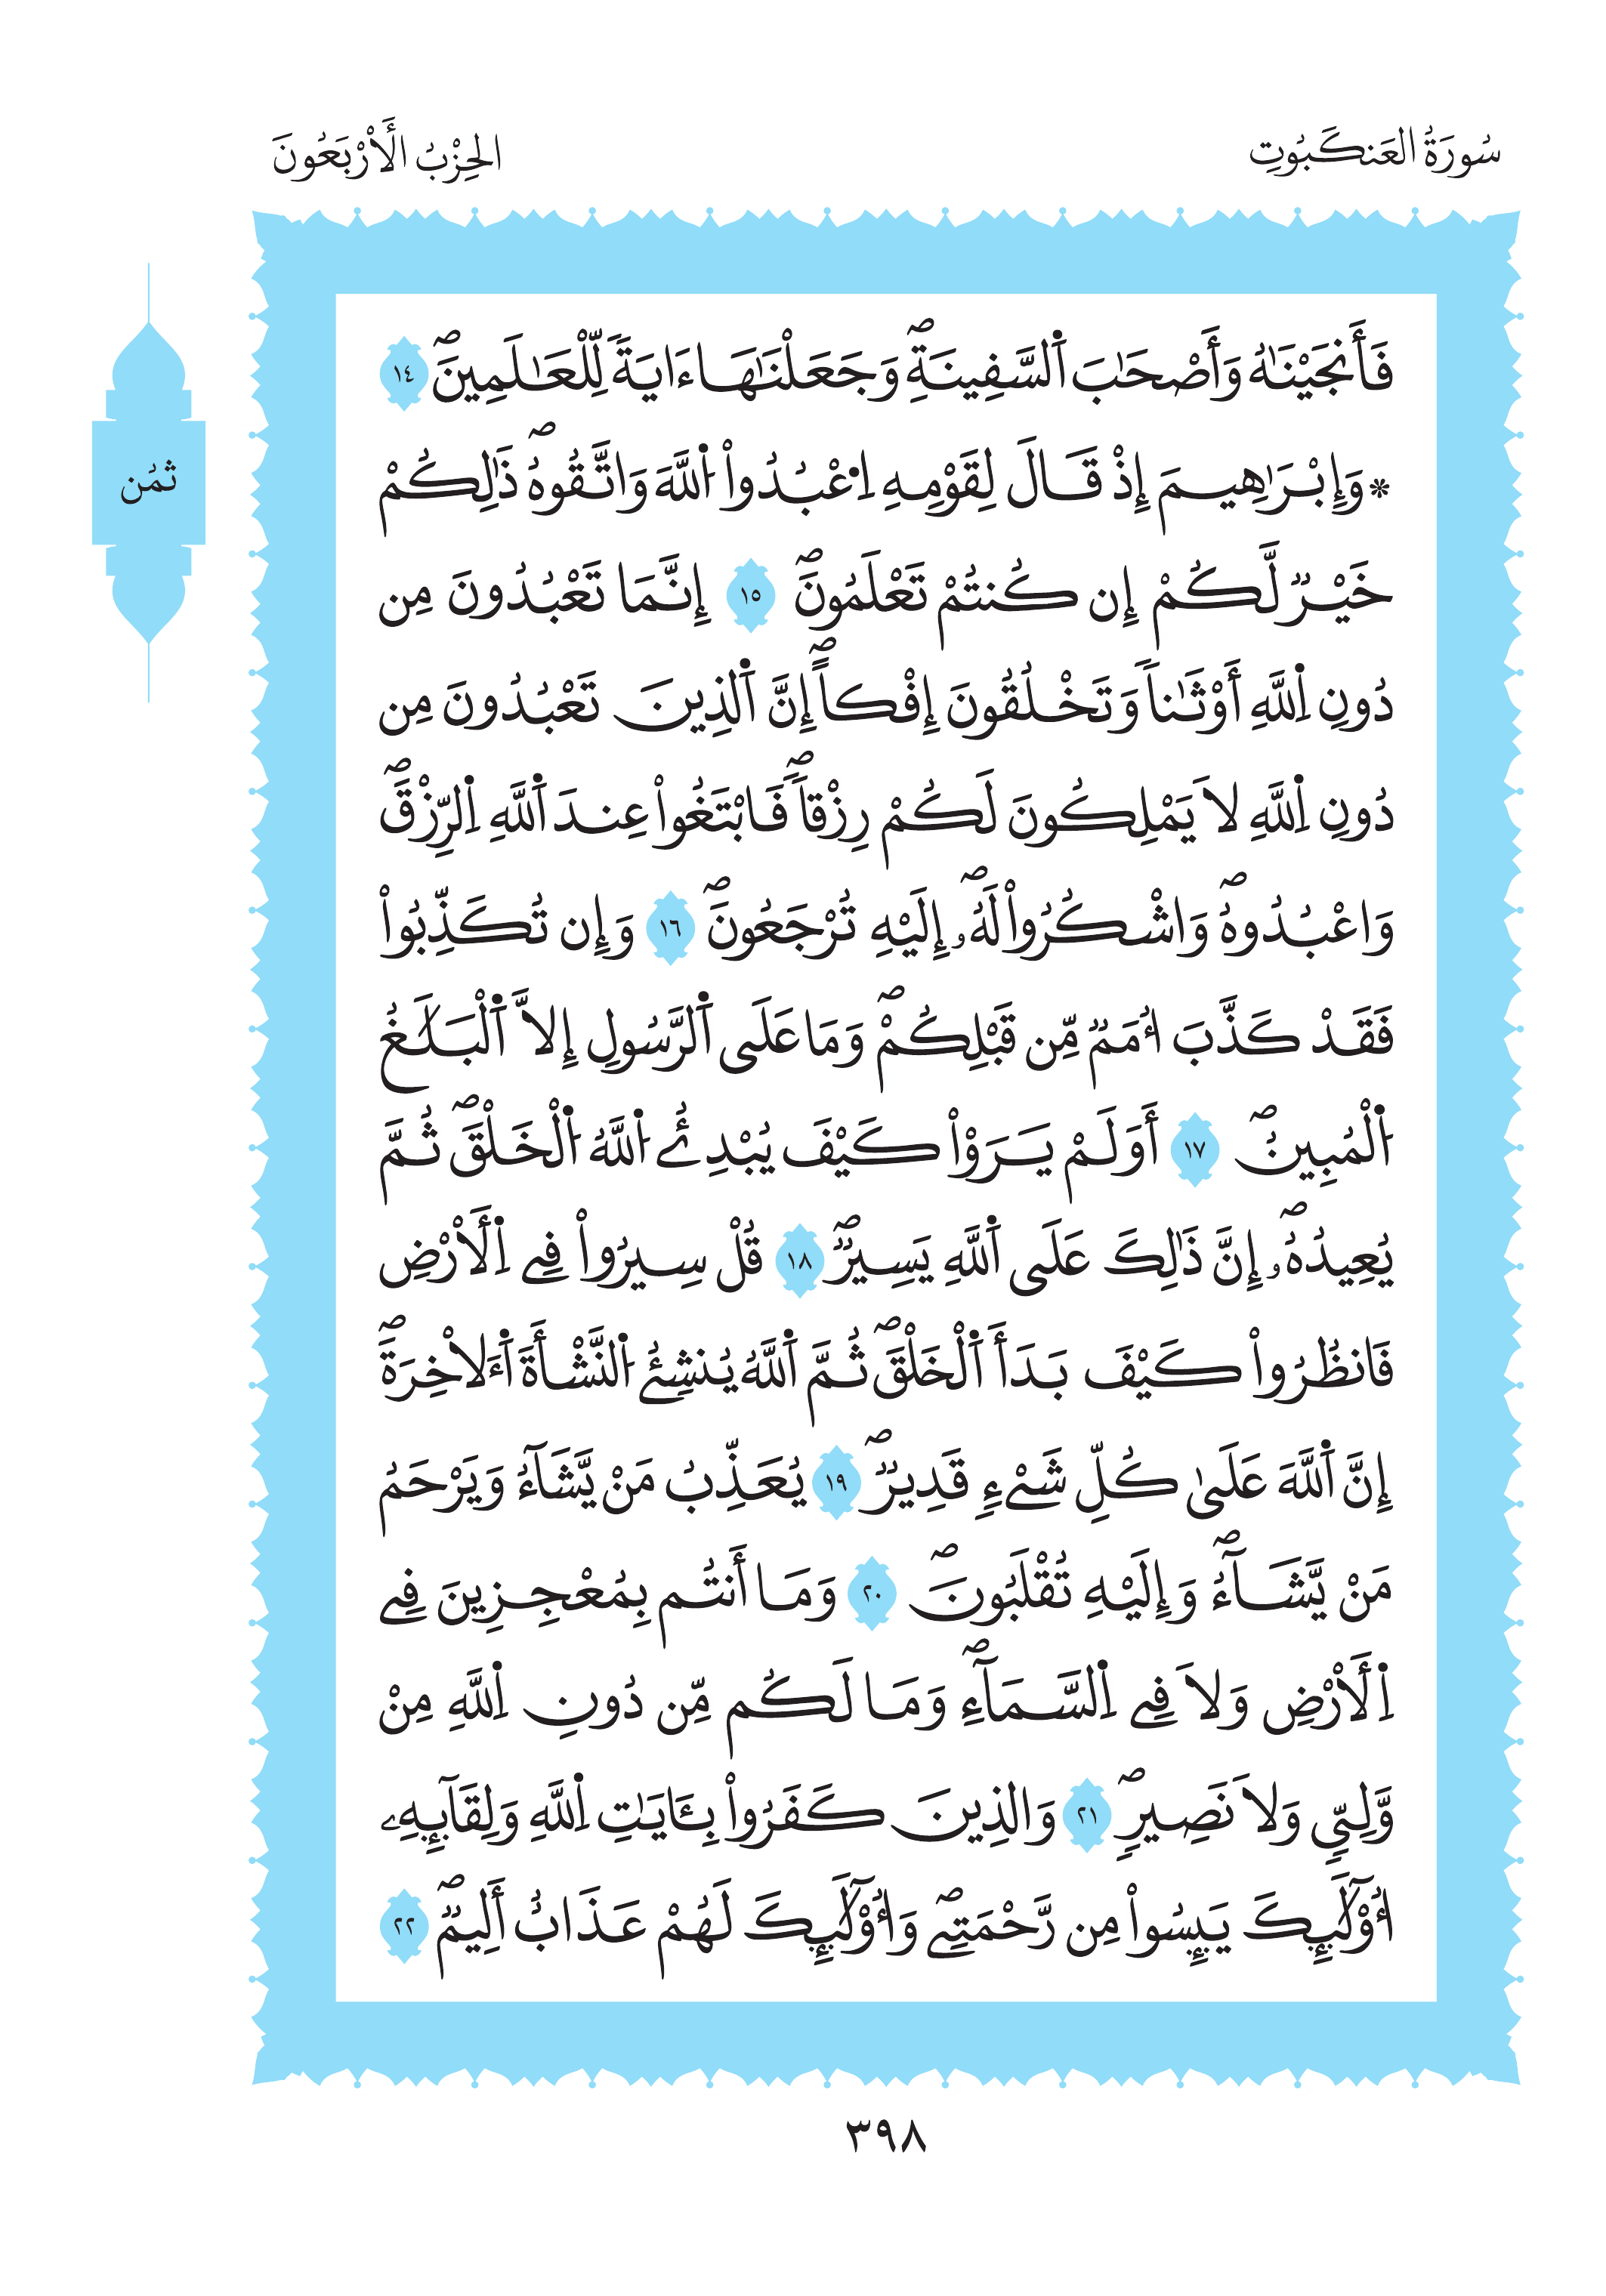 سُورَةُ العَنكَبُوتِ
الحِزْبُ الْأَرْبَعُونَ
ثمُن
فَأَنجَيْنَٰهُ وَأَصْحَٰبَ اَ۬لسَّفِينَةِۖ وَجَعَلْنَٰهَا ءَايَةٗ لِّلْعَٰلَمِينَۖ ١٤
* وَإِبْرَٰهِيمَ إِذْ قَالَ لِقَوْمِهِ اِ۟عْبُدُواْ اُ۬للَّهَ وَاتَّقُوهُۖ ذَٰلِكُمْ
خَيْرٞ لَّكُمْ إِن كُنتُمْ تَعْلَمُونَۖ ١٥ إِنَّمَا تَعْبُدُونَ مِن
دُونِ اِ۬للَّهِ أَوْثَٰناٗ وَتَخْلُقُونَ إِفْكاًۖ إِنَّ اَ۬لذِينَ تَعْبُدُونَ مِن
دُونِ اِ۬للَّهِ لَا يَمْلِكُونَ لَكُمْ رِزْقاٗۖ فَابْتَغُواْ عِندَ اَ۬للَّهِ اِ۬لرِّزْقَۖ
وَاعْبُدُوهُۖ وَاشْكُرُواْ لَهُۥۖ إِلَيْهِ تُرْجَعُونَۖ ١٦ وَإِن تُكَذِّبُواْ
فَقَدْ كَذَّبَ أُمَمٞ مِّن قَبْلِكُمْۖ وَمَا عَلَى اَ۬لرَّسُولِ إِلَّا اَ۬لْبَلَٰغُ
اُ۬لْمُبِينُۖ ١٧ أَوَلَمْ يَرَوْاْ كَيْفَ يُبْدِۓُ اُ۬للَّهُ اُ۬لْخَلْقَۖ ثُمَّ
يُعِيدُهُۥۖ إِنَّ ذَٰلِكَ عَلَى اَ۬للَّهِ يَسِيرٞۖ ١٨ قُلْ سِيرُواْ فِے اِ۬لْأَرْضِ
فَانظُرُواْ كَيْفَ بَدَأَ اَ۬لْخَلْقَۖ ثُمَّ اَ۬للَّهُ يُنشِۓُ اُ۬لنَّشْأَةَ اَ۬لْأٓخِرَةَۖ
إِنَّ اَ۬للَّهَ عَلَىٰ كُلِّ شَےْءٖ قَدِيرٞۖ ١٩ يُعَذِّبُ مَنْ يَّشَآءُ وَيَرْحَمُ
مَنْ يَّشَآءُۖ وَإِلَيْهِ تُقْلَبُونَۖ ٢٠ وَمَا أَنتُم بِمُعْجِزِينَ فِے
اِ۬لْأَرْضِ وَلَا فِے اِ۬لسَّمَآءِۖ وَمَا لَكُم مِّن دُونِ اِ۬للَّهِ مِنْ
وَّلِيّٖ وَلَا نَصِيرٖۖ ٢١ وَالذِينَ كَفَرُواْ بِـَٔايَٰتِ اِ۬للَّهِ وَلِقَآئِهِۦ
أُوْلَٰٓئِكَ يَئِسُواْ مِن رَّحْمَتِےۖ وَأُوْلَٰٓئِكَ لَهُمْ عَذَابٌ أَلِيمٞۖ ٢٢
٣٩٨